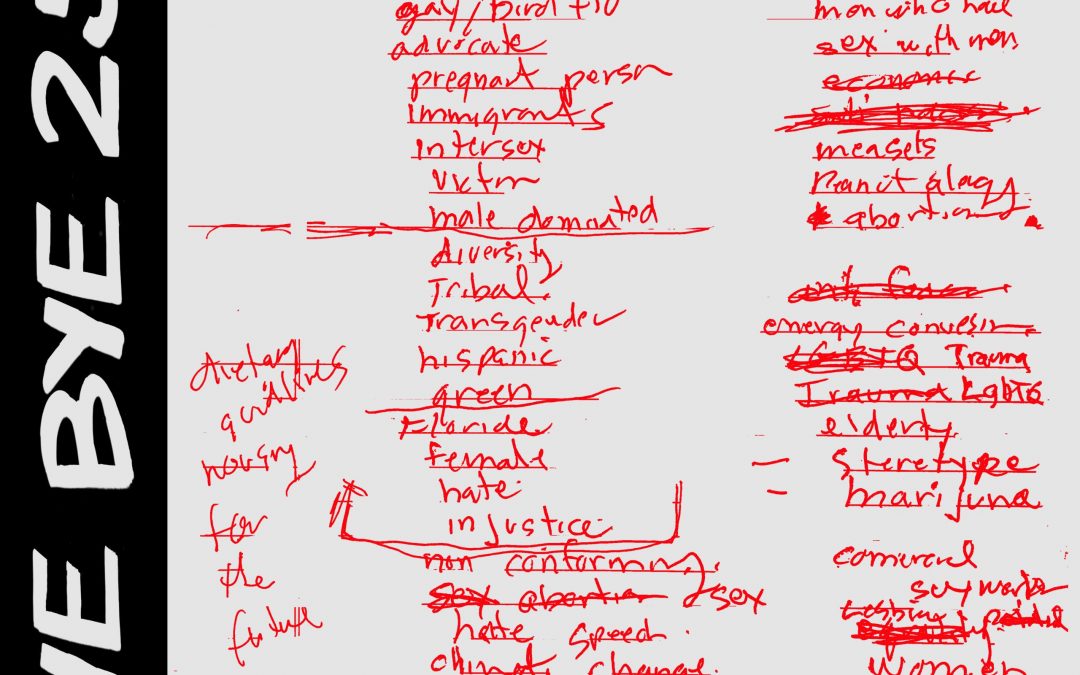 BYE BYE 25
gay/bird flu
advicate
pregnant persn
immigrants
intersex
victm
male domnated
diversity
Tribal.
Transgender
hispanic
green
Floride
female
hate
injustice
non conforming
sex abortion sex
hate speech.
climate change.
for
the
future
men who have
sex with men
economic
measels
Peanut alagy
abortion
energy conversin
LGBTQ Trauma
Trauma LgbTQ
elderty
- steretype
- marijuna
comercal
sexworker
women